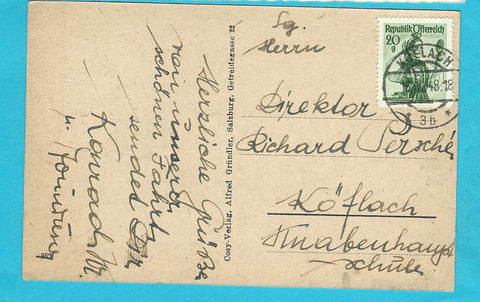 Herzliche Grüße
von unserer
schönen Fahrt
sendet Dir
Konrad M.
u.
Cosy-Verlag, Alfred Gründler, Salzburg, Getreidegasse 22
Sg.
Herrn
Direktor
Richard Persché
Köflach
Knabenhaupt
schule.
Republik Österreich
20
g
48.18
* 3b *